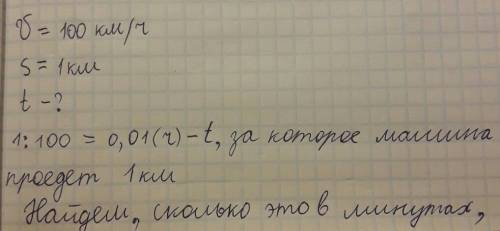 v = 100 км/ч
s = 1 км
t - ?
1 : 100 = 0,01 (ч) - t, за которое машина
проедет 1 км
Найдем, сколько это в минутах,